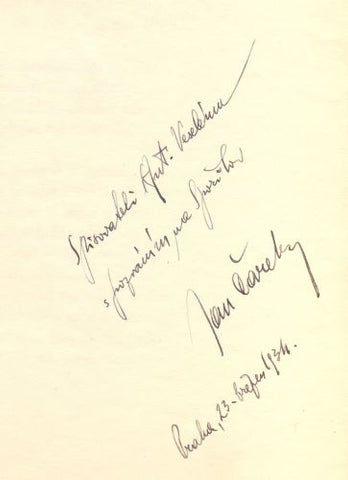 Spisovateli Ant. Veselému
s pozdravem na Spořilov
Jan Čarek
Praha, 23. březen 1934.